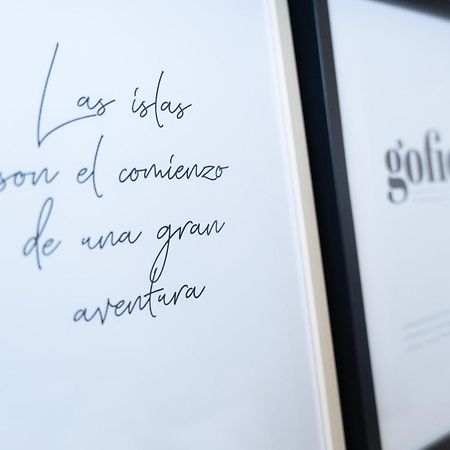 Las islas
son el comienzo
de una gran
aventura